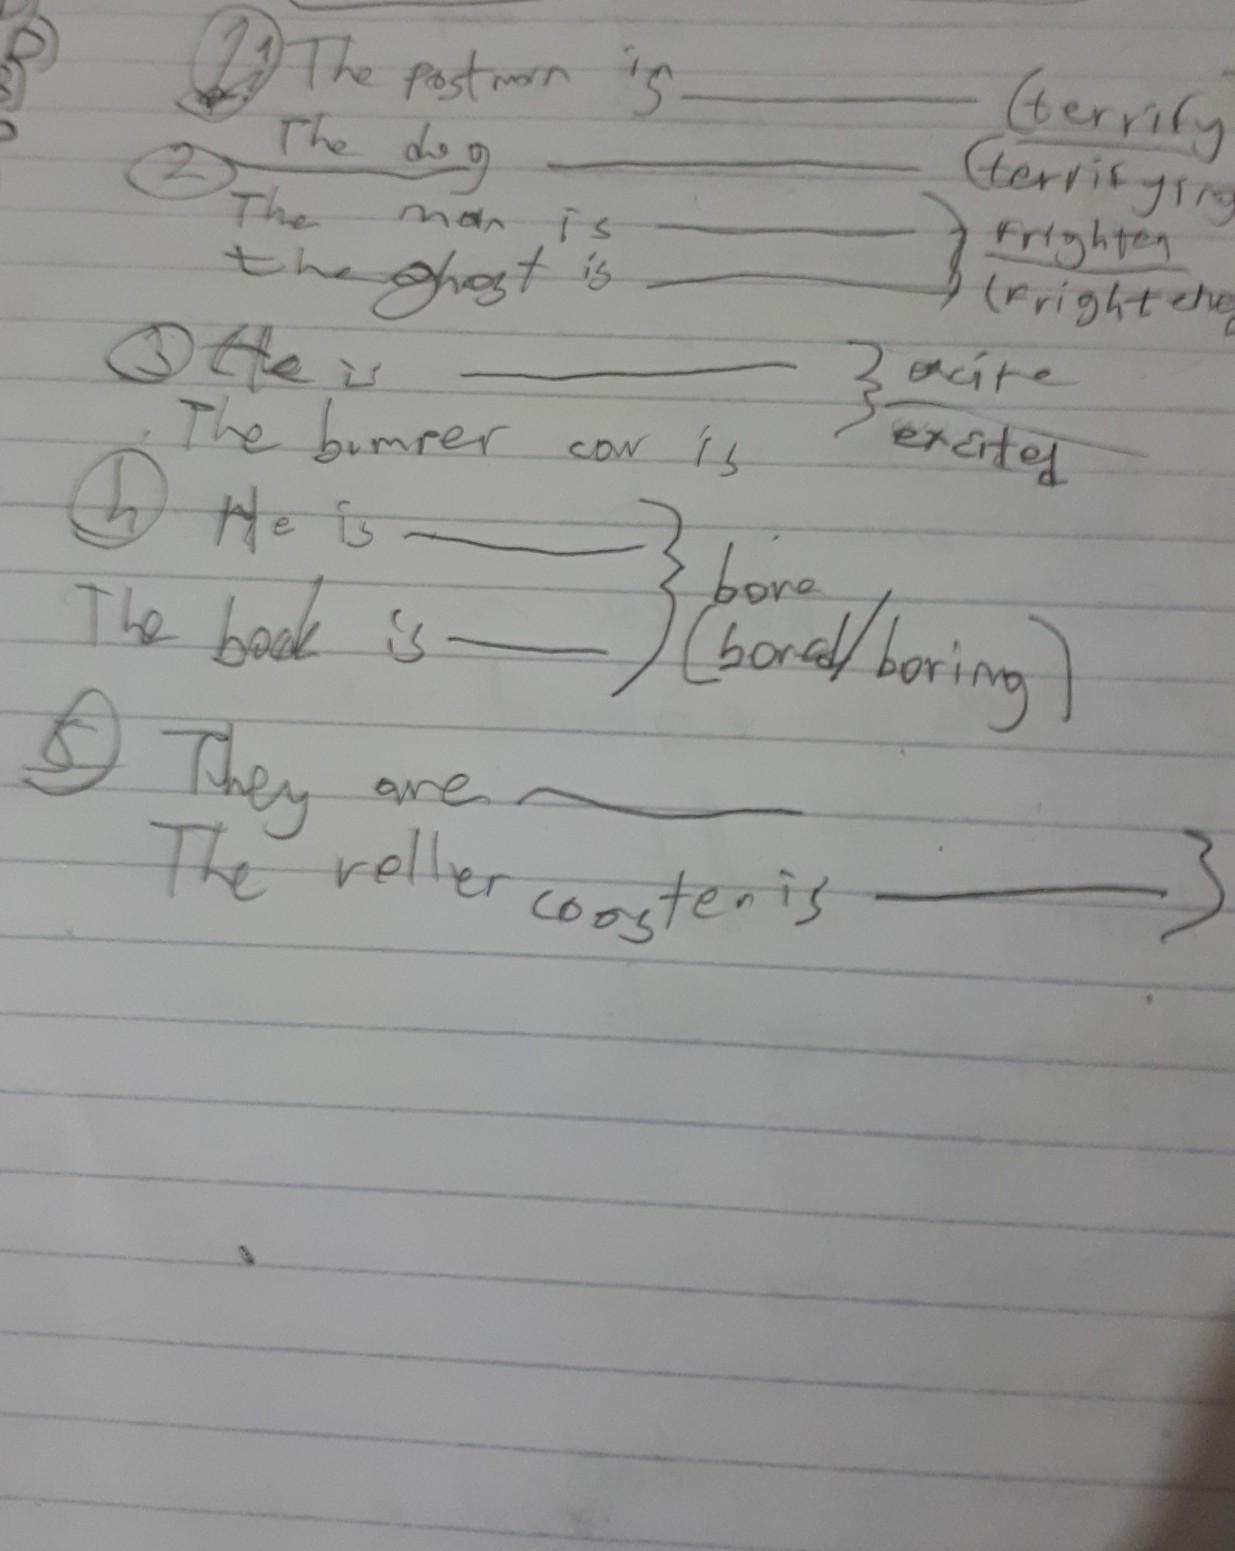 1) The postman is ———— (terrify
The dog ———— (terrifying
2 The man is ———— } frighten
the ghost is ———— (frightene
3 He is ———— } excite
The bumper car is excited
4 He is ———— } bore
The book is ——— (bored/boring)
5 They are ————
The roller cooster is ———— }